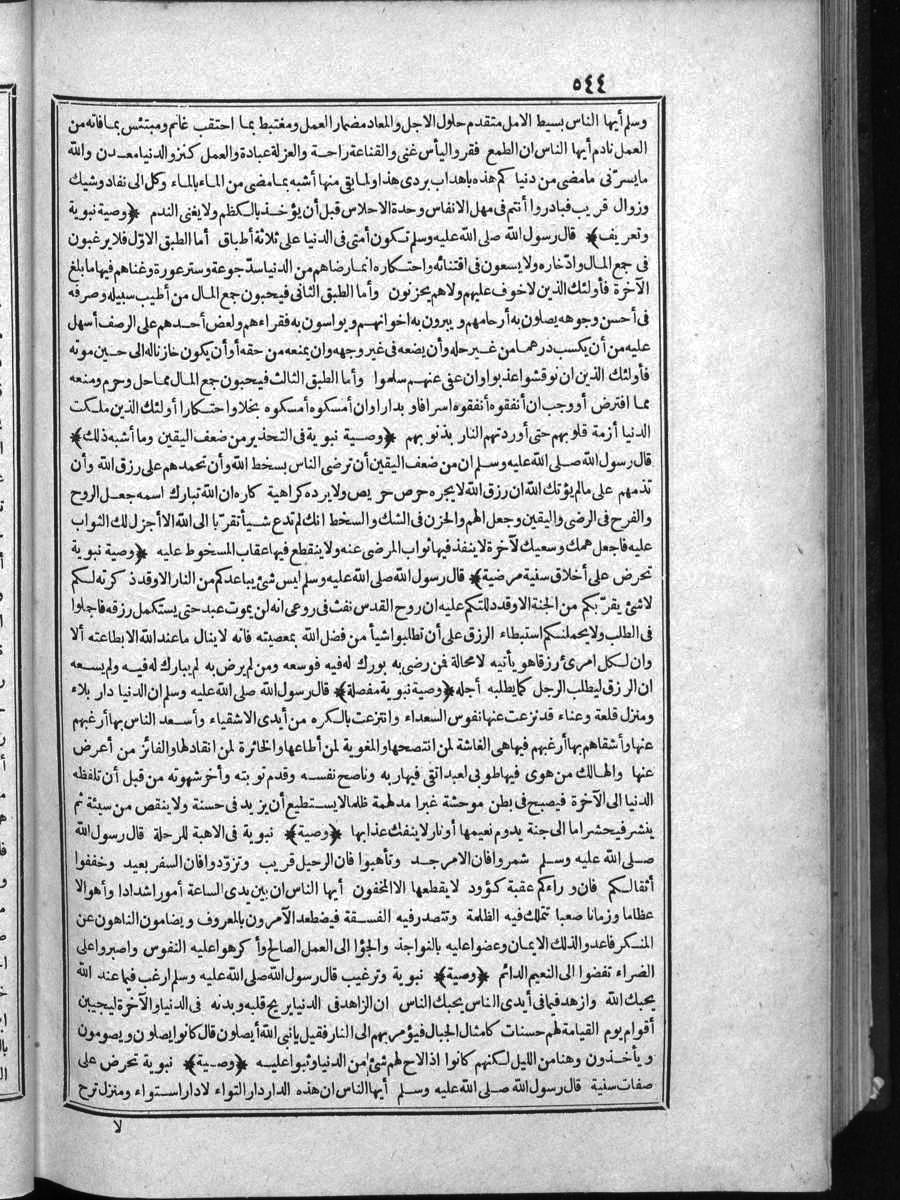 ٥٤٤
وسلم أيها الناس بسيط الامل متقدم حلول الاجل والمعاد مضمار العمل ومغتبط بما احتقب غانم ومبتئس بما فاته من
العمل نادم أيها الناس ان الطمع فقر واليأس غنى والقناعة راحة والعزلة عبادة والعمل كنز والدنيا معدن والله
ما يسرّنى ما مضى من دنيا كم هذه باهداب بردى هذا ولما بقى منها أشبه بما مضى من الماء بالماء وكل الى نفاد وشيك
وزوال قريب فبادروا أنتم فى مهل الانفاس وحدة الاحلاس قبل أن يؤخذ بالكظم ولا يغنى الندم ﴿وصية نبوية
وتعريف﴾ قال رسول الله صلى الله عليه وسلم تكون أمتى فى الدنيا على ثلاثة أطباق أما الطبق الاوّل فلا يرغبون
فى جمع المال وادّخاره ولا يسعون فى اقتنائه واحتكاره انما رضاهم من الدنيا سدّ جوعة وستر عورة وغناهم فيها ما بلغ
الآخرة فأولئك الذين لا خوف عليهم ولا هم يحزنون وأما الطبق الثانى فيحبون جمع المال من أطيب سبيله وصرفه
فى أحسن وجوهه يصلون به أرحامهم ويبرون به اخوانهم ويواسون به فقراءهم ولعض أحدهم على الرصف أسهل
عليه من أن يكسب درهما من غير حله وأن يضعه فى غير وجهه وان يمنعه من حقه أو أن يكون خازنا له الى حين موته
فأولئك الذين ان نوقشوا عذبوا وان عفى عنهم سلموا وأما الطبق الثالث فيحبون جمع المال مما حل وحرم ومنعه
مما افترض أو وجب ان أنفقوه أنفقوه اسرافا وبدارا وان أمسكوه أمسكوه بخلا واحتكارا أولئك الذين ملكت
الدنيا أزمة قلوبهم حتى أوردتهم النار بذنوبهم ﴿وصية نبوية فى التحذير من ضعف اليقين وما أشبه ذلك﴾
قال رسول الله صلى الله عليه وسلم ان من ضعف اليقين أن ترضى الناس بسخط الله وأن تحمدهم على رزق الله وأن
تذمهم على ما لم يؤتك الله ان رزق الله لا يجره حرص حريص ولا يرده كراهية كاره ان الله تبارك اسمه جعل الروح
والفرح فى الرضى واليقين وجعل الهم والحزن فى الشك والسخط انك لم تدع شيأ تقرّبا الى الله الا أجزل لك الثواب
عليه فاجعل همك وسعيك لآخرة لا ينفد فيها ثواب المرضى عنه ولا ينقطع فيها عقاب المسخوط عليه ﴿وصية نبوية
تحرض على أخلاق سنية مرضية﴾ قال رسول الله صلى الله عليه وسلم ليس شئ يباعدكم من النار الا وقد ذكرته لكم
لا شئ يقرّبكم من الجنة الا وقد دللتكم عليه ان روح القدس نفث فى روعى انه لن يموت عبد حتى يستكمل رزقه فاجملوا
فى الطلب ولا يحملنكم استبطاء الرزق على أن تطلبوا شيأ من فضل الله بمعصيته فانه لا ينال ما عند الله الا بطاعته ألا
وان لكل امرئ رزقا هو يأتيه لا محالة فمن رضى به بورك له فيه فوسعه ومن لم يرض به لم يبارك له فيه ولم يسعه
ان الرزق ليطلب الرجل كما يطلبه أجله ﴿وصية نبوية مفصلة﴾ قال رسول الله صلى الله عليه وسلم ان الدنيا دار بلاء
ومنزل قلعة وعناء قد نزعت عنها نفوس السعداء وانتزعت بالكره من أيدى الاشقياء وأسعد الناس بها أرغبهم
عنها وأشقاهم بها أرغبهم فيها هى الغاشة لمن انتصحها والمغوية لمن أطاعها والخائرة لمن انقاد لها والفائز من أعرض
عنها والهالك من هوى فيها طوبى لعبد اتقى فيها ربه وناصح نفسه وقدم توبته وأخر شهوته من قبل أن تلفظه
الدنيا الى الآخرة فيصبح فى بطن موحشة غبرا مدلهمة ظلما لا يستطيع أن يزيد فى حسنة ولا ينقص من سيئة ثم
ينشر فيحشر اما الى جنة يدوم نعيمها أو نار لا ينفك عذابها ﴿وصية﴾ نبوية فى الاهبة للرحلة قال رسول الله
صلى الله عليه وسلم شمروا فان الامر جد وتأهبوا فان الرحيل قريب وتزوّدوا فان السفر بعيد وخففوا
أثقالكم فان وراءكم عقبة كؤود لا يقطعها الا المخفون أيها الناس ان بين يدى الساعة أمورا شدادا وأهوالا
عظاما وزمانا صعبا تتملك فيه الظلمة وتتصدر فيه الفسقة فيضطهد الآمرون بالمعروف ويضامون الناهون عن
المنكر فاعدوا لذلك الايمان وعضوا عليه بالنواجذ والجؤا الى العمل الصالح وأكرهوا عليه النفوس واصبروا على
الضراء تفضوا الى النعيم الدائم ﴿وصية﴾ نبوية وترغيب قال رسول الله صلى الله عليه وسلم ارغب فيما عند الله
يحبك الله وازهد فيما فى أيدى الناس يحبك الناس ان الزاهد فى الدنيا يريح قلبه وبدنه فى الدنيا والآخرة ليجيبن
أقوام يوم القيامة لهم حسنات كامثال الجبال فيؤمر بهم الى النار فقيل يا نبى الله أيصلون قال كانوا يصلون ويصومون
ويأخذون وهنا من الليل لكنهم كانوا اذا لاح لهم شئ من الدنيا وثبوا عليه ﴿وصية﴾ نبوية تحرض على
صفات سنية قال رسول الله صلى الله عليه وسلم أيها الناس ان هذه الدار دار التواء لا دار استواء ومنزل ترح
لا